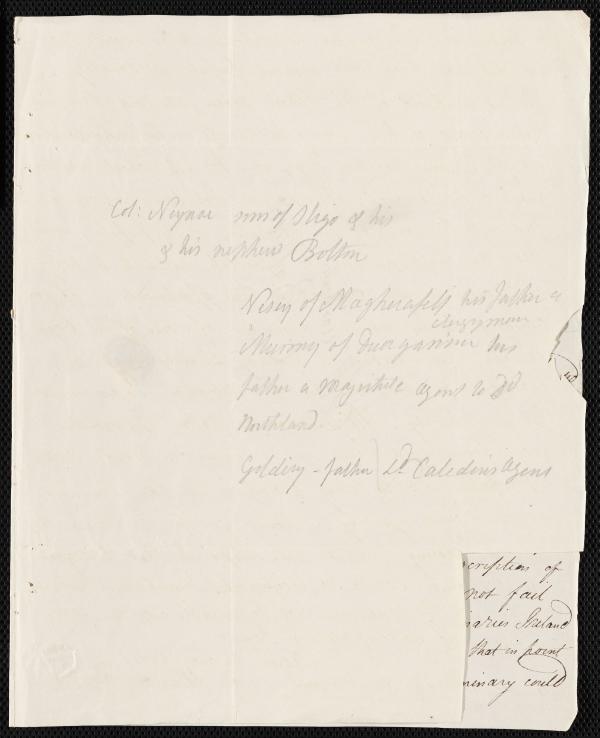 Col: sons of Sligo & his
& his nephew Bolton
Vesey of Magherafelt his father a
clergyman
Murray of Dungannon his
father a magistrate agent to Ld
Northland.
Golding - father Ld Caledon's agent
cription of
not fail
naries Ireland
that in point
minary could